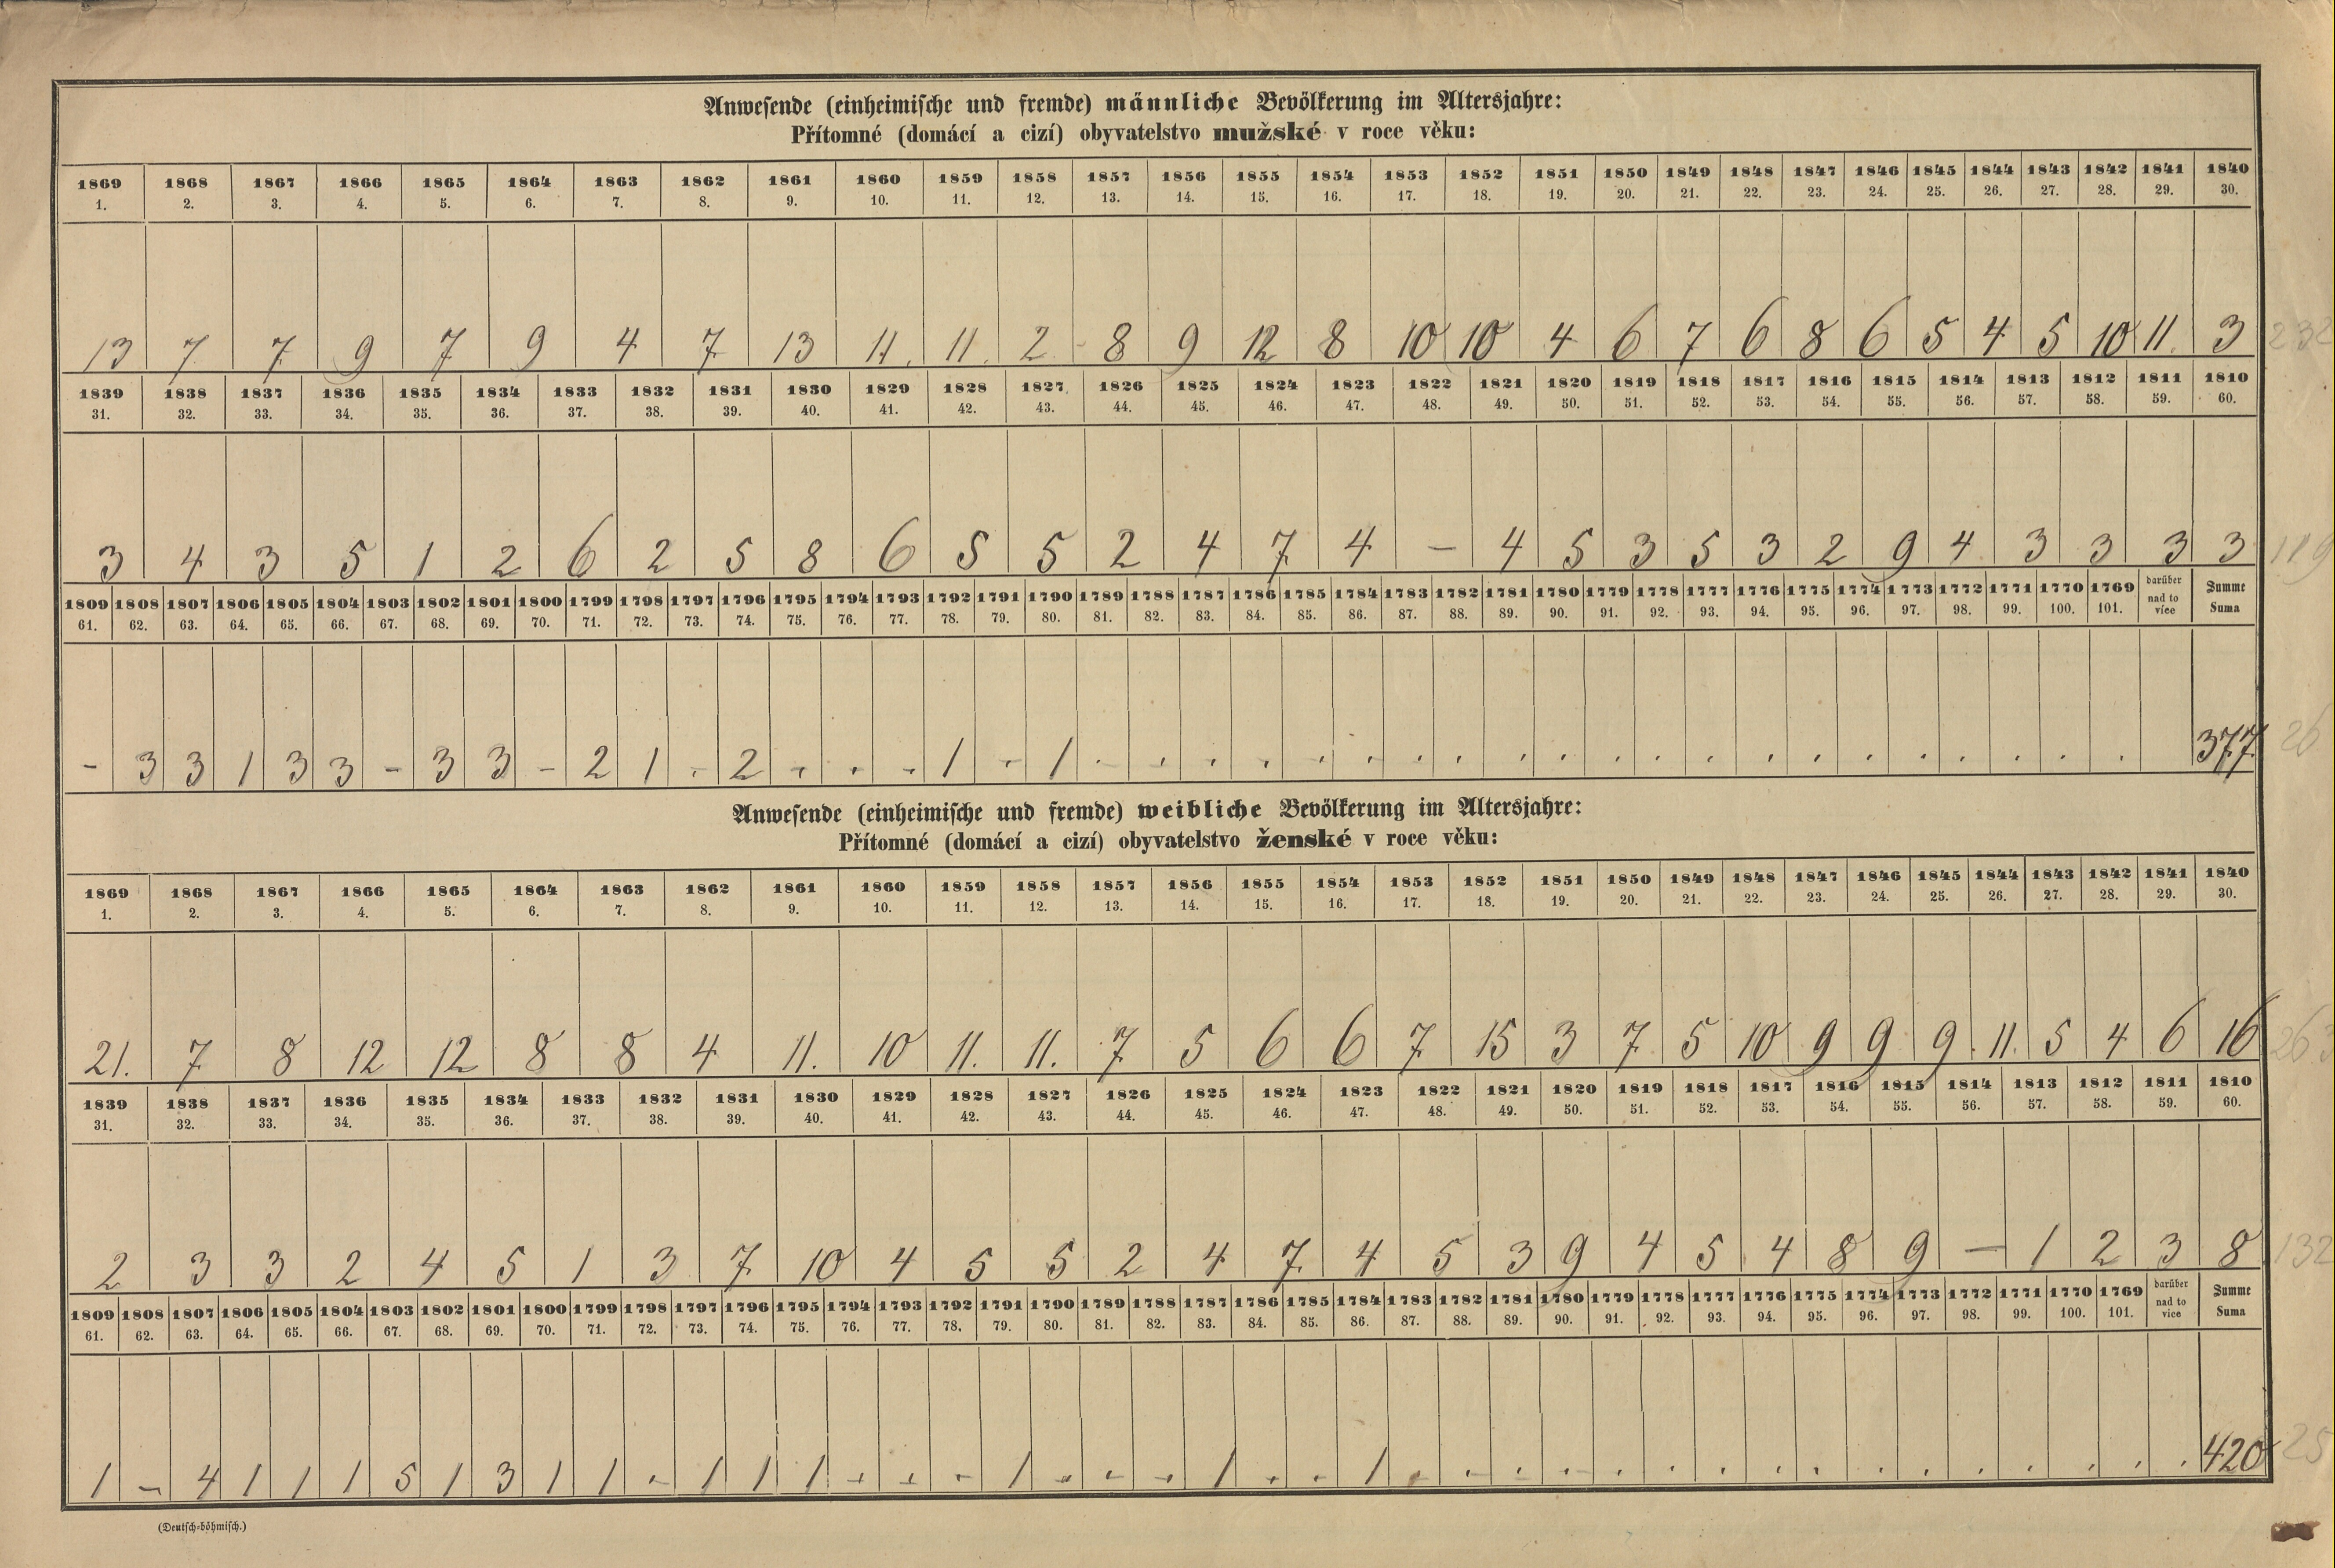 Anwesende (einheimische und fremde) männliche Bevölkerung im Altersjahre:
Přítomné (domácí a cizí) obyvatelstvo mužské v roce věku:
1869 1868 1867 1866 1865 1864 1863 1862 1861 1860 1859 1858 1857 1856 1855 1854 1853 1852 1851 1850 1849 1848 1847 1846 1845 1844 1843 1842 1841 1840
1. 2. 3. 4. 5. 6. 7. 8. 9. 10. 11. 12. 13. 14. 15. 16. 17. 18. 19. 20. 21. 22. 23. 24. 25. 26. 27. 28. 29. 30.
13 7 7 9 7 9 4 7 13 11. 11. 2 8 9 12 8 10 10 4 6 7 6 8 6 5 4 5 10 11. 3 232
1839 1838 1837 1836 1835 1834 1833 1832 1831 1830 1829 1828 1827 1826 1825 1824 1823 1822 1821 1820 1819 1818 1817 1816 1815 1814 1813 1812 1811 1810
31. 32. 33. 34. 35. 36. 37. 38. 39. 40. 41. 42. 43. 44. 45. 46. 47. 48. 49. 50. 51. 52. 53. 54. 55. 56. 57. 58. 59. 60.
3 4 3 5 1 2 6 2 5 8 6 5 5 2 4 7 4 – 4 5 3 5 3 2 9 4 3 3 3 3 119
1809 1808 1807 1806 1805 1804 1803 1802 1801 1800 1799 1798 1797 1796 1795 1794 1793 1792 1791 1790 1789 1788 1787 1786 1785 1784 1783 1782 1781 1780 1779 1778 1777 1776 1775 1774 1773 1772 1771 1770 1769 darüber nad to více Summe Suma
61. 62. 63. 64. 65. 66. 67. 68. 69. 70. 71. 72. 73. 74. 75. 76. 77. 78. 79. 80. 81. 82. 83. 84. 85. 86. 87. 88. 89. 90. 91. 92. 93. 94. 95. 96. 97. 98. 99. 100. 101.
– 3 3 1 3 3 – 3 3 – 2 1 - 2 - - - 1 - 1 - . . . . . . . . . . . . . . . . . . . . 377 26
Anwesende (einheimische und fremde) weibliche Bevölkerung im Altersjahre:
Přítomné (domácí a cizí) obyvatelstvo ženské v roce věku:
1869 1868 1867 1866 1865 1864 1863 1862 1861 1860 1859 1858 1857 1856 1855 1854 1853 1852 1851 1850 1849 1848 1847 1846 1845 1844 1843 1842 1841 1840
1. 2. 3. 4. 5. 6. 7. 8. 9. 10. 11. 12. 13. 14. 15. 16. 17. 18. 19. 20. 21. 22. 23. 24. 25. 26. 27. 28. 29. 30.
21. 7 8 12 12 8 8 4 11. 10 11. 11. 7 5 6 6 7 15 3 7 5 10 9 9 9 11. 5 4 6 16 263
1839 1838 1837 1836 1835 1834 1833 1832 1831 1830 1829 1828 1827 1826 1825 1824 1823 1822 1821 1820 1819 1818 1817 1816 1815 1814 1813 1812 1811 1810
31. 32. 33. 34. 35. 36. 37. 38. 39. 40. 41. 42. 43. 44. 45. 46. 47. 48. 49. 50. 51. 52. 53. 54. 55. 56. 57. 58. 59. 60.
2 3 3 2 4 5 1 3 7 10 4 5 5 2 4 7. 4 5 3 9 4 5 4 8 9 – 1 2 3 8 132
1809 1808 1807 1806 1805 1804 1803 1802 1801 1800 1799 1798 1797 1796 1795 1794 1793 1792 1791 1790 1789 1788 1787 1786 1785 1784 1783 1782 1781 1780 1779 1778 1777 1776 1775 1774 1773 1772 1771 1770 1769 darüber nad to více Summe Suma
61. 62. 63. 64. 65. 66. 67. 68. 69. 70. 71. 72. 73. 74. 75. 76. 77. 78. 79. 80. 81. 82. 83. 84. 85. 86. 87. 88. 89. 90. 91. 92. 93. 94. 95. 96. 97. 98. 99. 100. 101.
1 – 4 1 1 1 5 1 3 1 1 - 1 1 1 - - - 1 - - - 1 - . 1 . . . . . . . . . . . . . . . . 420 25
(Deutsch-böhmisch.)